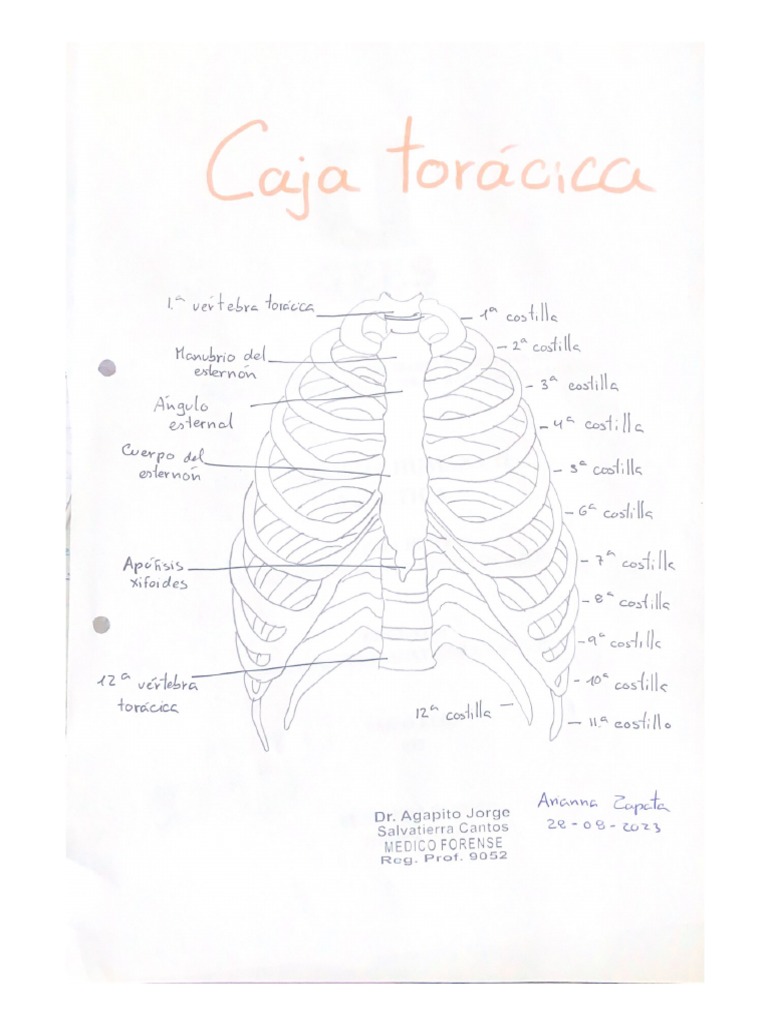 Caja torácica
1.ª vértebra torácica
1ª costilla
2ª costilla
Manubrio del
esternón
3ª costilla
Ángulo
esternal
4ª costilla
Cuerpo del
esternón
5ª costilla
6ª costilla
Apófisis
xifoides
7ª costilla
8ª costilla
9ª costilla
12ª vértebra
torácica
10ª costilla
12ª costilla
11.ª costilla
Arianna Zapata
28-08-2023
Dr. Agapito Jorge
Salvatierra Cantos
MEDICO FORENSE
Reg. Prof. 9052